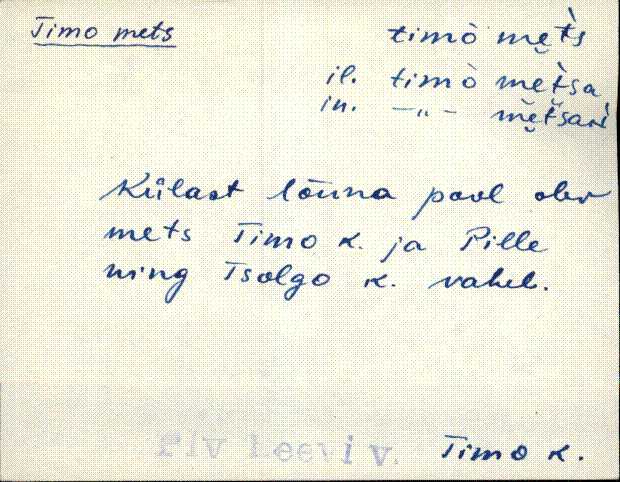 Timo mets
timò mèts
il. timò mètsa
in. –"– mètsari
Külast lõuna pool olev
mets Timo k. ja Pille
ning Tsolgo k. vahel.
Plv Leevi v. Timo k.